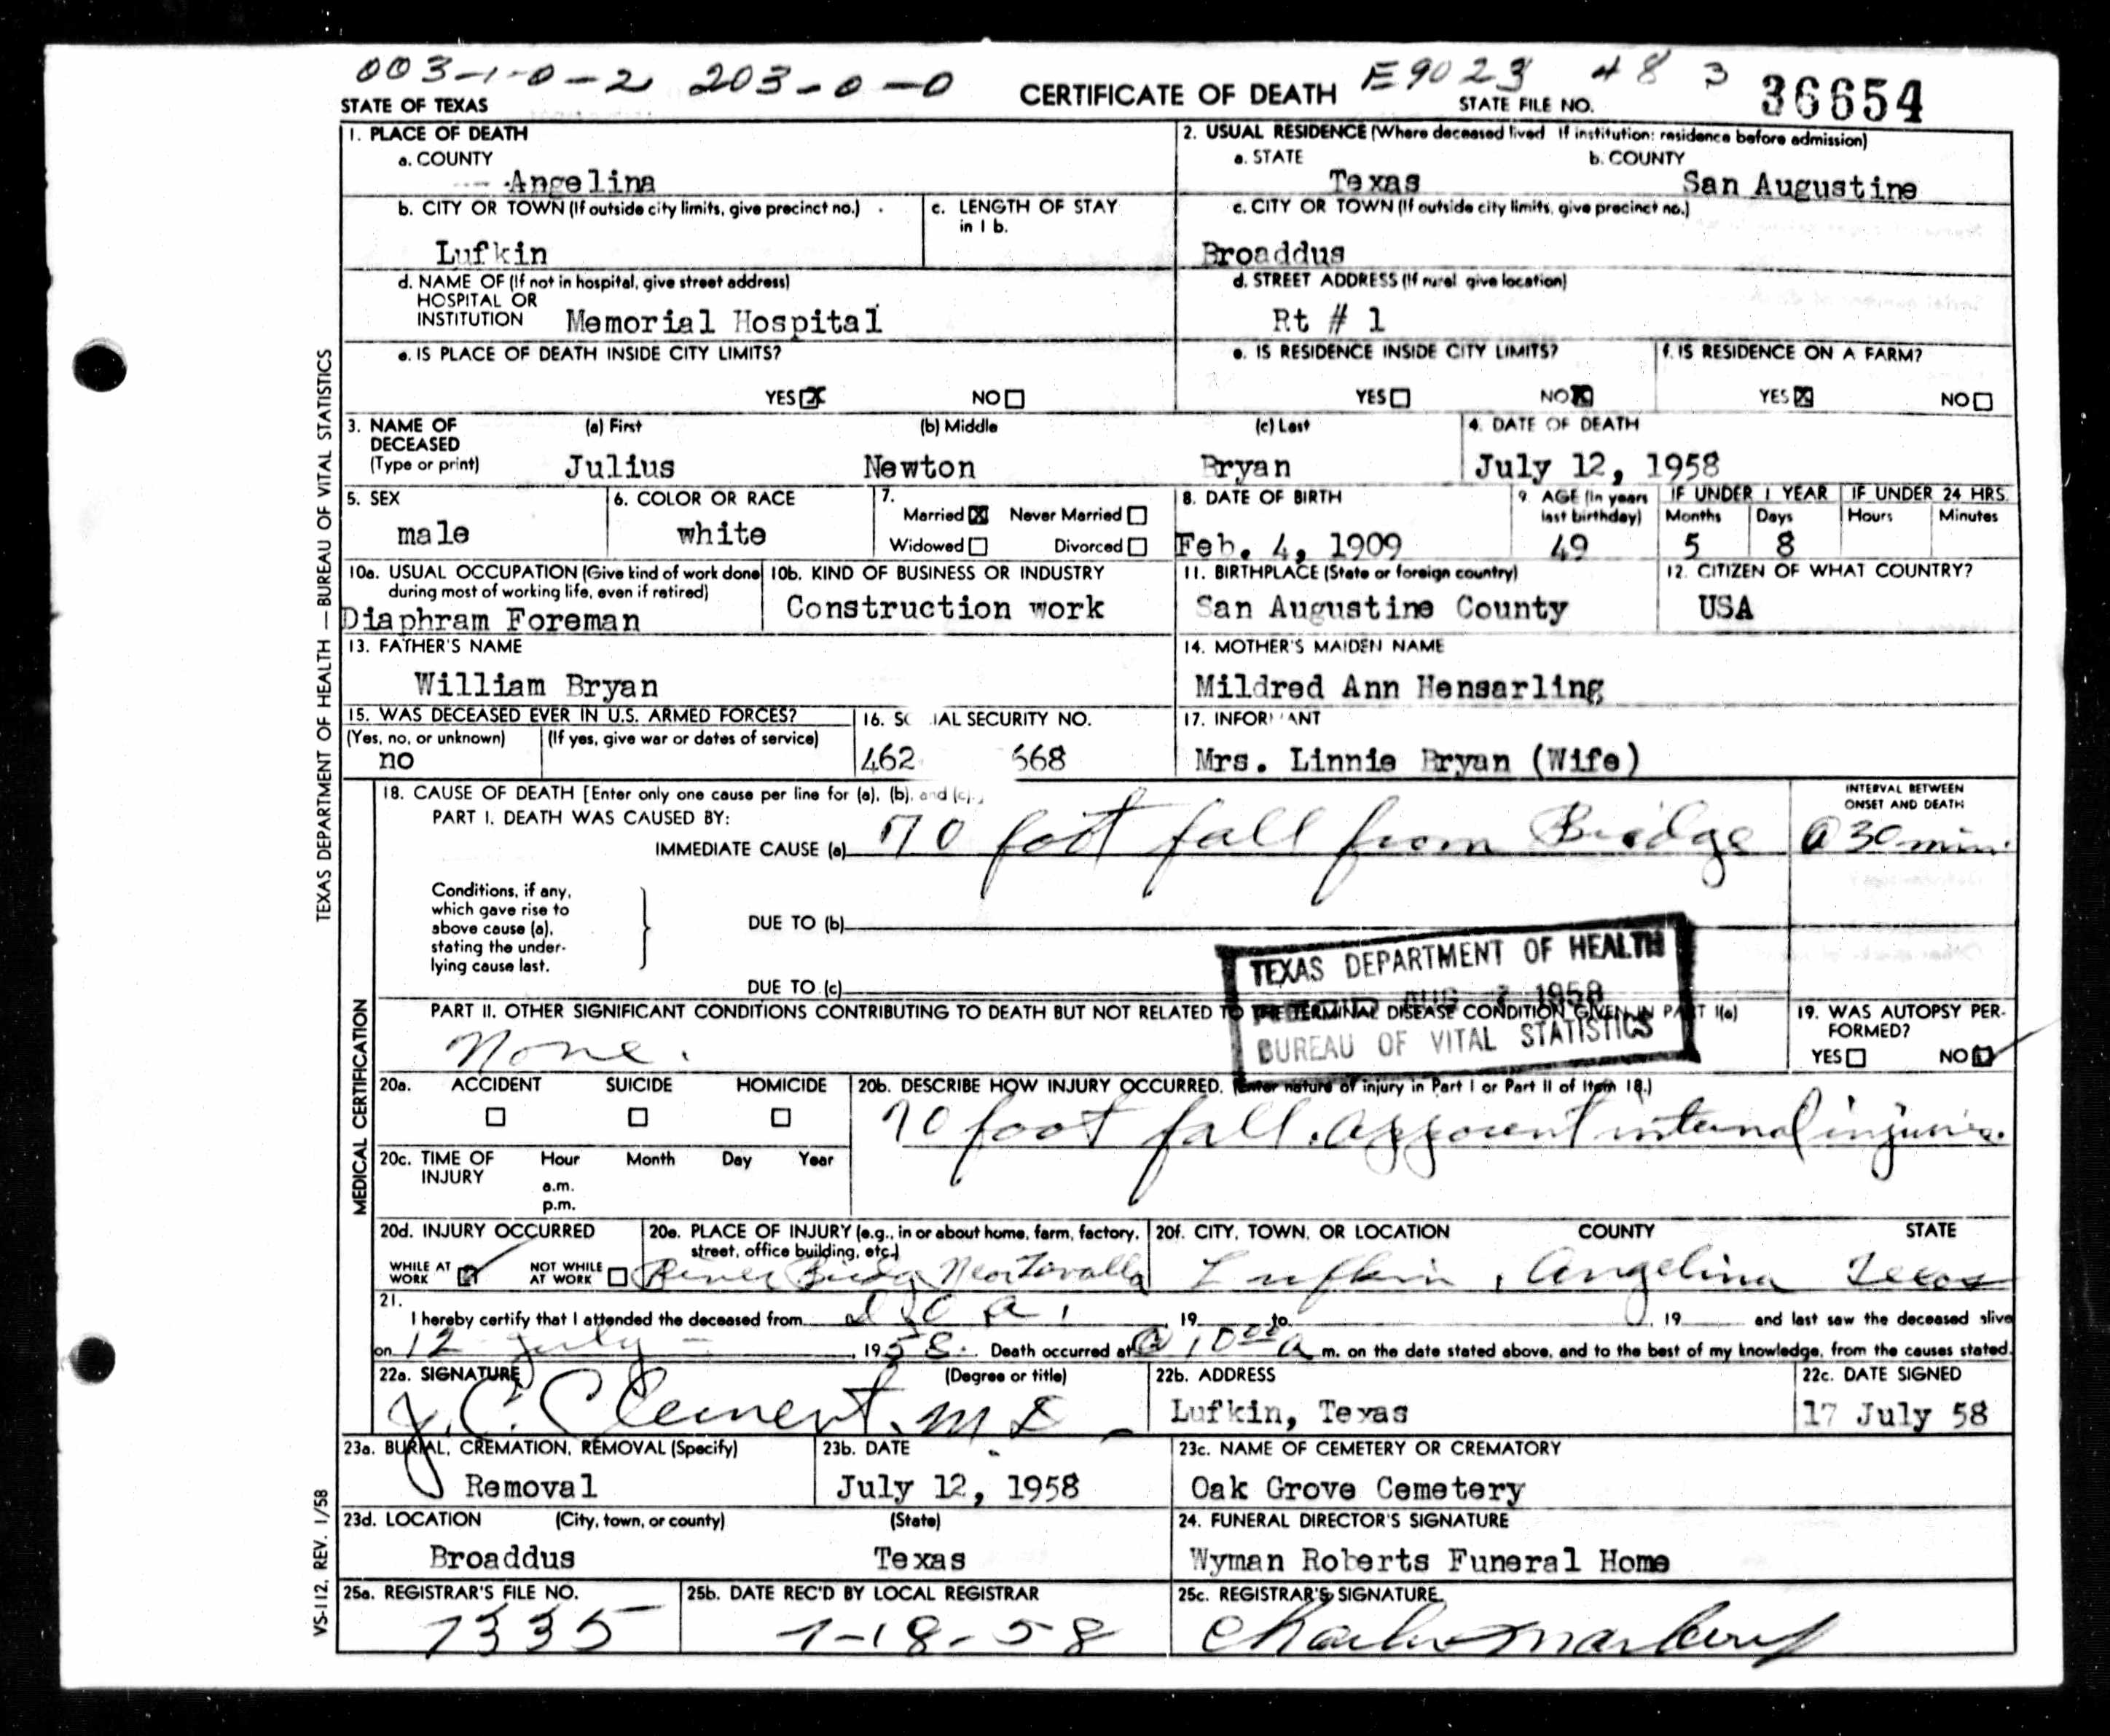 003-1-0-2 203-0-0 E9023 48 3
STATE OF TEXAS CERTIFICATE OF DEATH STATE FILE NO. 36654
1. PLACE OF DEATH
a. COUNTY
Angelina
2. USUAL RESIDENCE (Where deceased lived If institution: residence before admission)
a. STATE b. COUNTY
Texas San Augustine
b. CITY OR TOWN (If outside city limits, give precinct no.)
Lufkin
c. LENGTH OF STAY
in 1 b.
c. CITY OR TOWN (If outside city limits, give precinct no.)
Broaddus
d. NAME OF (If not in hospital, give street address)
HOSPITAL OR
INSTITUTION Memorial Hospital
d. STREET ADDRESS (If rural give location)
Rt # 1
e. IS PLACE OF DEATH INSIDE CITY LIMITS?
YES X NO
e. IS RESIDENCE INSIDE CITY LIMITS?
YES NO X
f. IS RESIDENCE ON A FARM?
YES X NO
3. NAME OF (a) First (b) Middle (c) Last
DECEASED
(Type or print) Julius Newton Bryan
4. DATE OF DEATH
July 12, 1958
5. SEX
male
6. COLOR OR RACE
white
7.
Married X Never Married
Widowed Divorced
8. DATE OF BIRTH
Feb. 4, 1909
9. AGE (In years
last birthday)
49
IF UNDER 1 YEAR
Months Days
5 8
IF UNDER 24 HRS.
Hours Minutes
10a. USUAL OCCUPATION (Give kind of work done
during most of working life, even if retired)
Diaphram Foreman
10b. KIND OF BUSINESS OR INDUSTRY
Construction work
11. BIRTHPLACE (State or foreign country)
San Augustine County
12. CITIZEN OF WHAT COUNTRY?
USA
13. FATHER'S NAME
William Bryan
14. MOTHER'S MAIDEN NAME
Mildred Ann Hensarling
15. WAS DECEASED EVER IN U.S. ARMED FORCES?
(Yes, no, or unknown) (If yes, give war or dates of service)
no
16. SO IAL SECURITY NO.
462 668
17. INFOR ANT
Mrs. Linnie Bryan (Wife)
18. CAUSE OF DEATH [Enter only one cause per line for (a), (b), and (c).
PART I. DEATH WAS CAUSED BY:
IMMEDIATE CAUSE (a) 70 foot fall from Bridge
INTERVAL BETWEEN
ONSET AND DEATH
@ 30 min.
Conditions, if any,
which gave rise to
above cause (a),
stating the under-
lying cause last.
DUE TO (b)
DUE TO (c)
TEXAS DEPARTMENT OF HEALTH
AUG 1958
BUREAU OF VITAL STATISTICS
PART II. OTHER SIGNIFICANT CONDITIONS CONTRIBUTING TO DEATH BUT NOT RELATED TO THE TERMINAL DISEASE CONDITION GIVEN IN PART I(a)
None.
19. WAS AUTOPSY PER-
FORMED?
YES NO
20a. ACCIDENT SUICIDE HOMICIDE
20b. DESCRIBE HOW INJURY OCCURRED. (Enter nature of injury in Part I or Part II of Item 18.)
70 foot fall. apparent internal injuries.
20c. TIME OF Hour Month Day Year
INJURY
a.m.
p.m.
20d. INJURY OCCURRED
WHILE AT
WORK
NOT WHILE
AT WORK
20e. PLACE OF INJURY (e.g., in or about home, farm, factory,
street, office building, etc.)
River Bridge Near Zavalla
20f. CITY, TOWN, OR LOCATION COUNTY STATE
Lufkin, Angelina Texas
21.
I hereby certify that I attended the deceased from D.O.A. , 19 to , 19 and last saw the deceased alive
on 12 July , 1958. Death occurred at @ 10:00 a m. on the date stated above, and to the best of my knowledge, from the causes stated.
22a. SIGNATURE (Degree or title)
J. C. Clement, M D
22b. ADDRESS
Lufkin, Texas
22c. DATE SIGNED
17 July 58
23a. BURIAL, CREMATION, REMOVAL (Specify)
Removal
23b. DATE
July 12, 1958
23c. NAME OF CEMETERY OR CREMATORY
Oak Grove Cemetery
23d. LOCATION (City, town, or county) (State)
Broaddus Texas
24. FUNERAL DIRECTOR'S SIGNATURE
Wyman Roberts Funeral Home
25a. REGISTRAR'S FILE NO.
7335
25b. DATE REC'D BY LOCAL REGISTRAR
7-18-58
25c. REGISTRAR'S SIGNATURE
TEXAS DEPARTMENT OF HEALTH — BUREAU OF VITAL STATISTICS
MEDICAL CERTIFICATION
VS-112, REV. 1/58